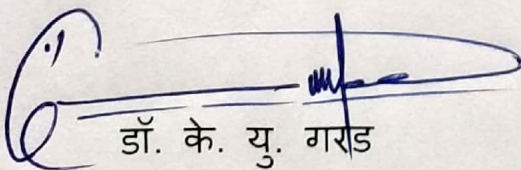 डॉ. के. यु. गरड